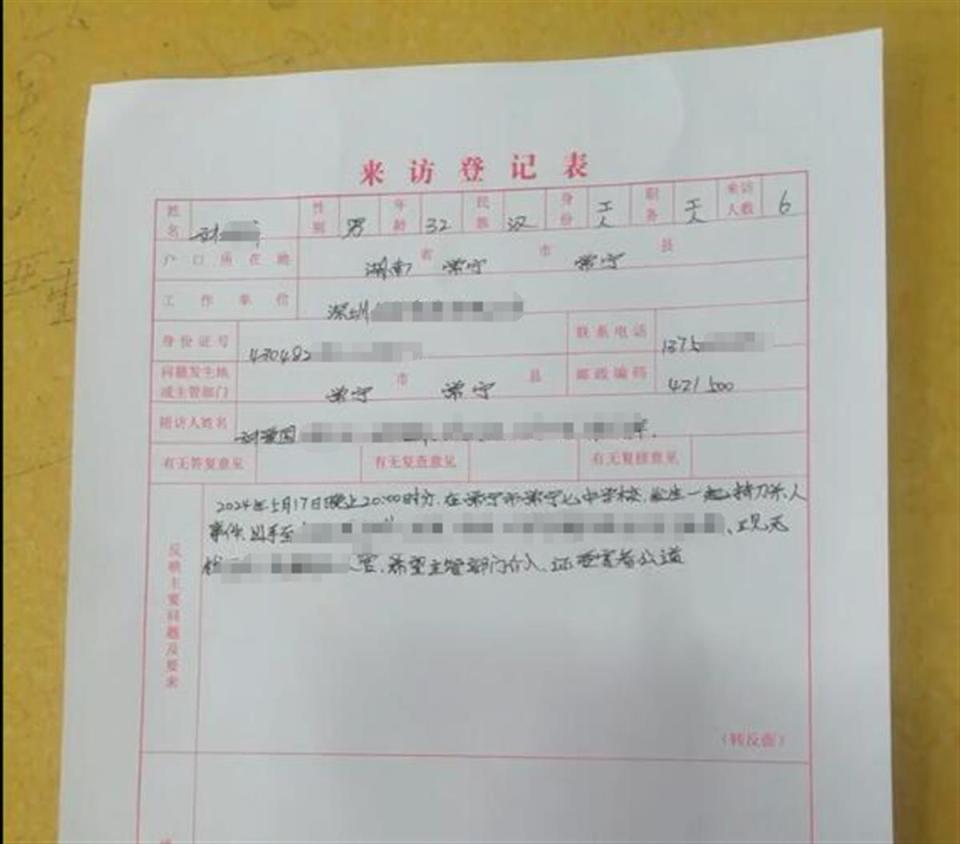 来访登记表
姓名 性别 男 年龄 32 民族 汉 身份 工人 职务 工人 来访人数 6
户口所在地 湖南 省 常宁 市 常宁 县
工作单位 深圳
身份证号 430482 联系电话 1375
问题发生地或主管部门 常宁 市 常宁 县 邮政编码 421500
陪访人姓名
有无答复意见 有无复查意见 有无复核意见
反映主要问题及要求
2024年5月17日晚上20:00时分,在常宁市常宁七中学校,发生一起持刀杀人
事件,凶手至
希望主管部门介入,还受害者公道
(转反面)